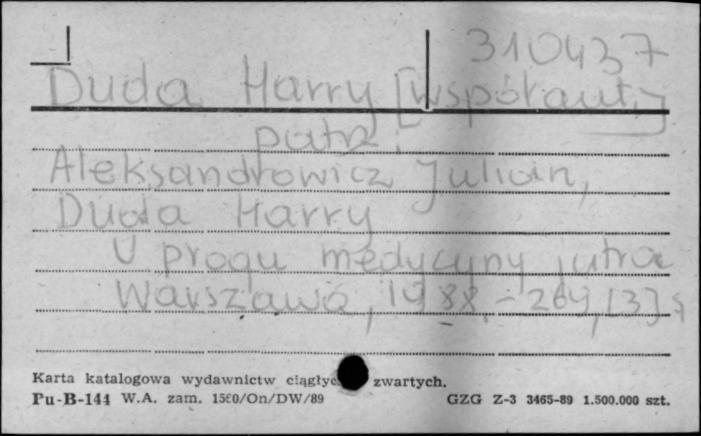 310437
Duda Harry [współaut.]
patrz:
Aleksandrowicz Julian,
Duda Harry
U progu medycyny jutra
Warszawa, 1988. - 269, [3] s
Karta katalogowa wydawnictw zwartych.
Pu-B-144 W.A. zam. 1560/On/DW/89 GZG Z-3 3465-89 1.500.000 szt.